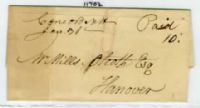 Concord NH
Jan 31
Paid
10
Mr Mills Olcott Esq
Hanover